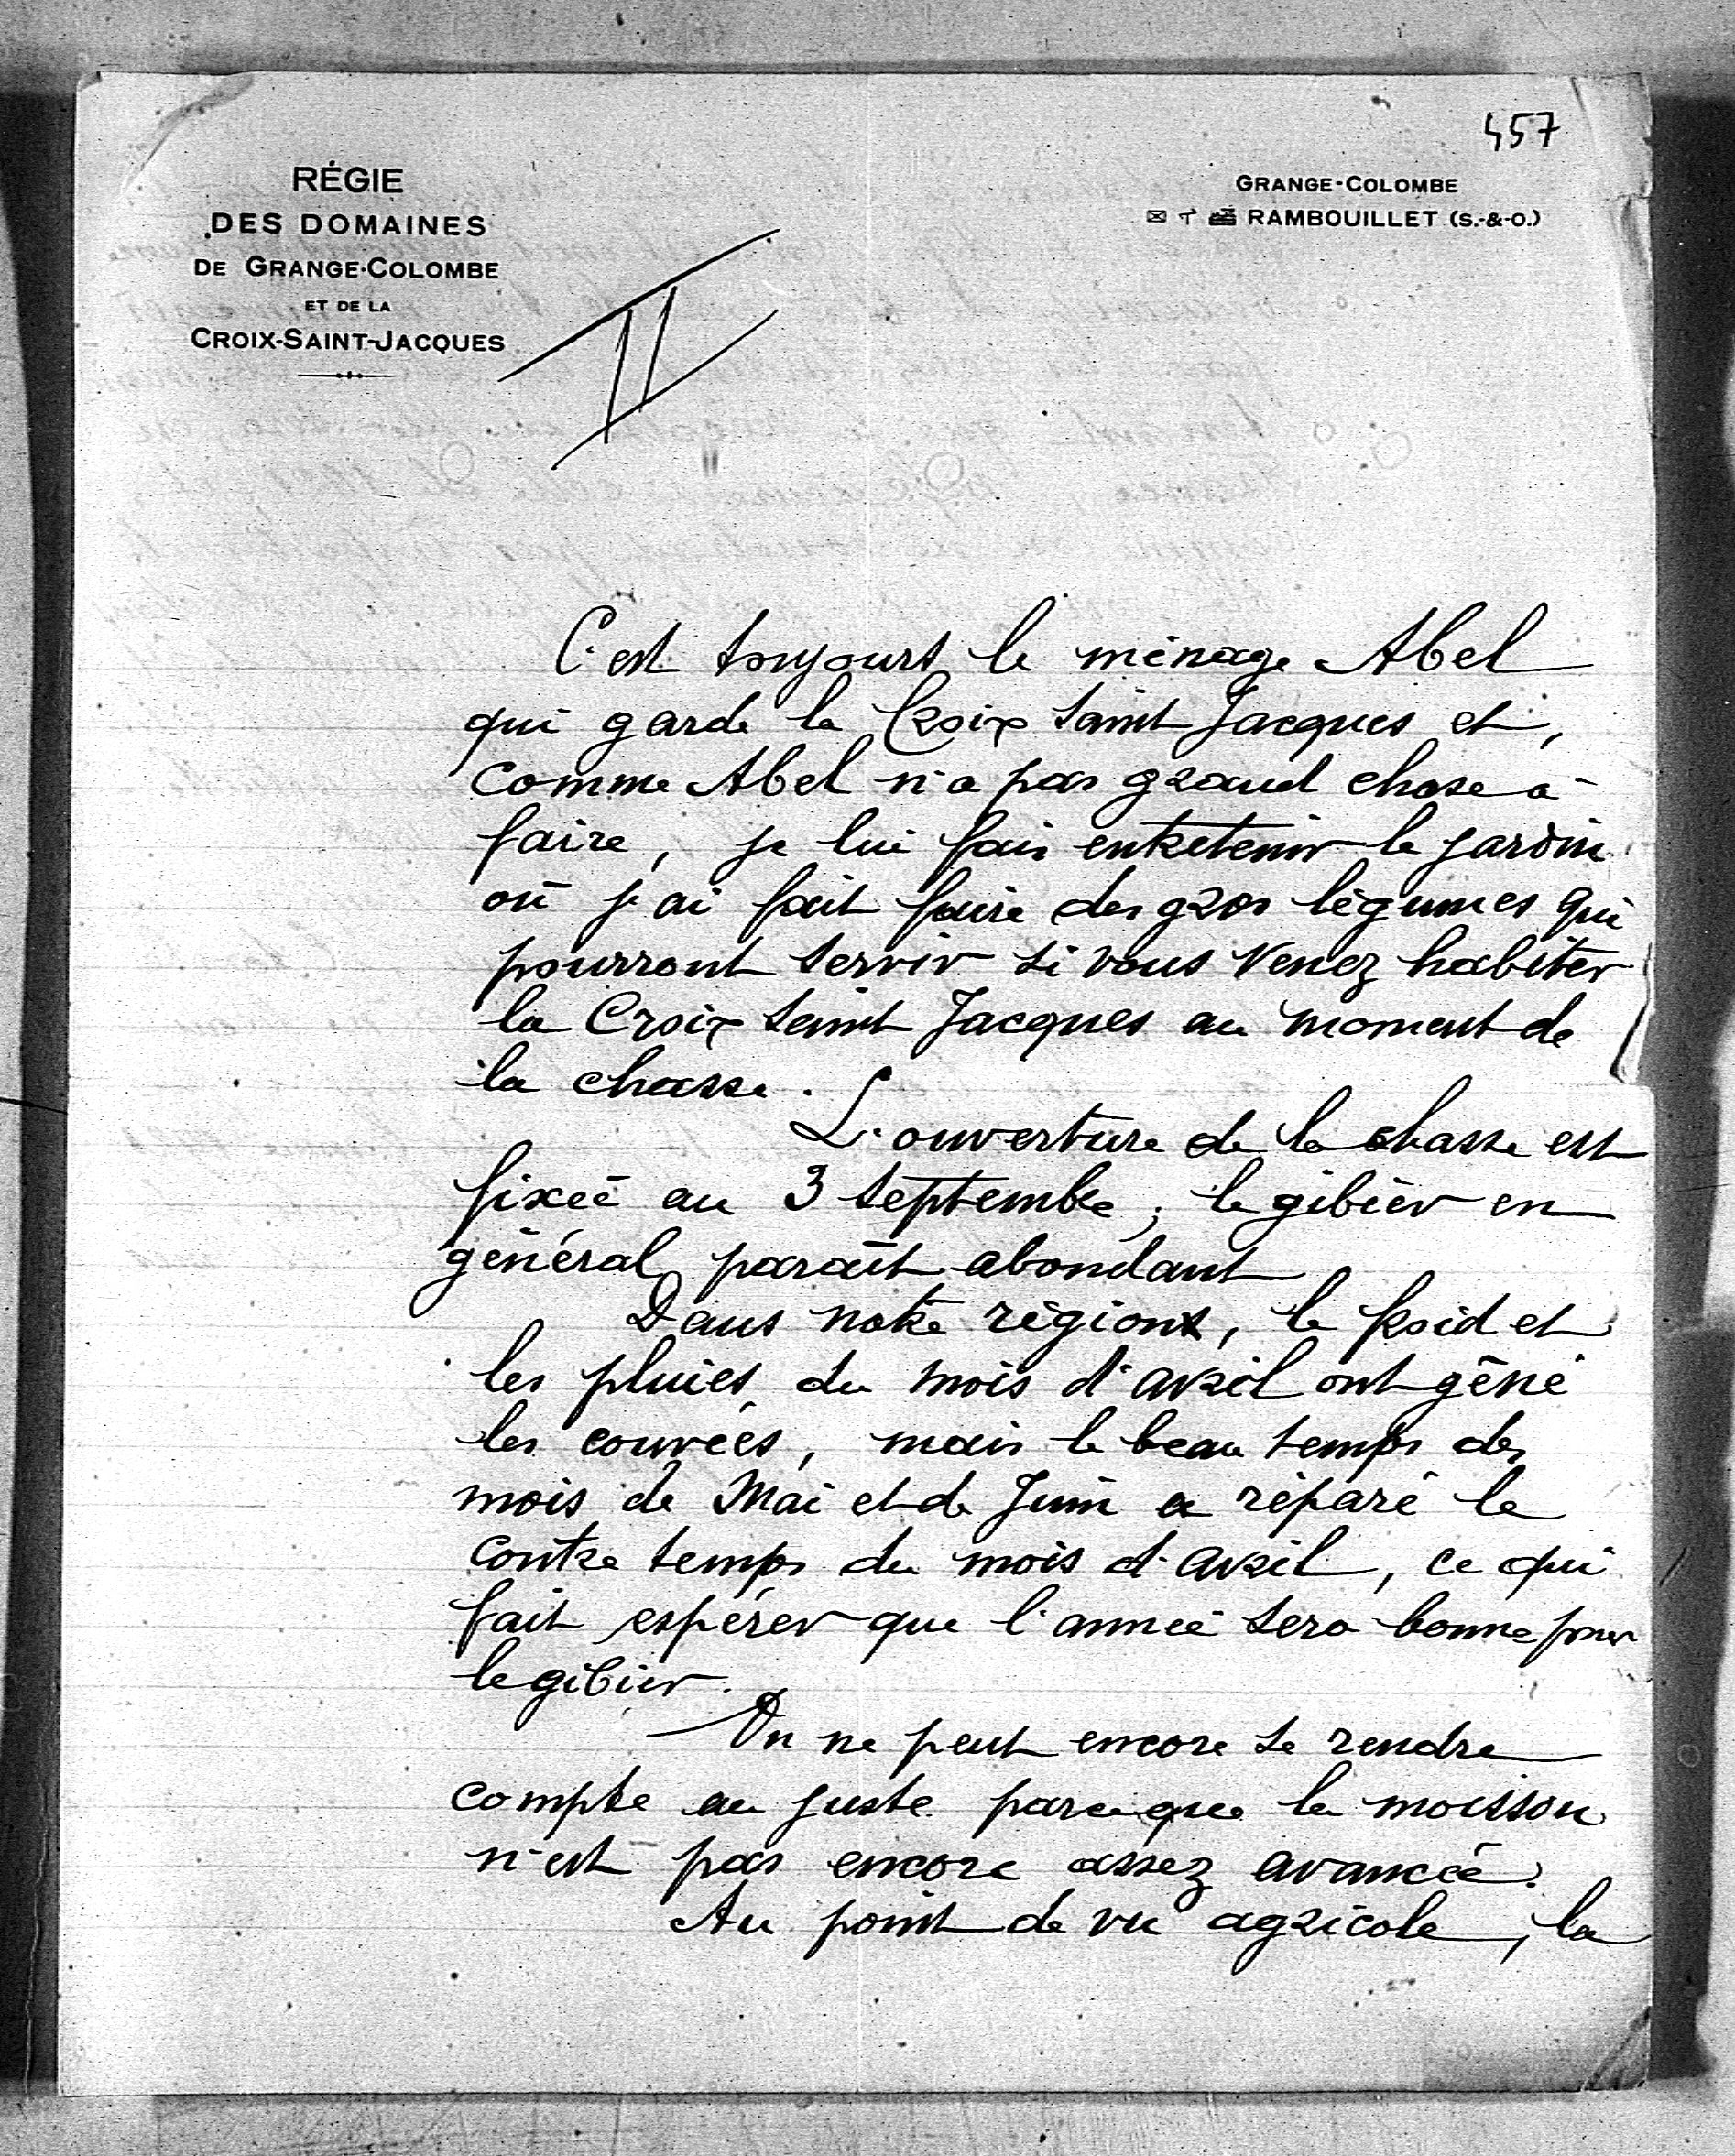 457
RÉGIE
DES DOMAINES
DE GRANGE-COLOMBE
ET DE LA
CROIX-SAINT-JACQUES
GRANGE-COLOMBE
RAMBOUILLET (S.-&-O.)
II
C'est toujours le ménage Abel
qui garde la Croix Saint Jacques et,
comme Abel n'a pas grand chose à
faire, je lui fais entretenir le jardin
où j'ai fait faire des gros légumes qui
pourront servir si vous venez habiter
la Croix Saint Jacques au moment de
la chasse.
L'ouverture de la chasse est
fixée au 3 Septembre, le gibier en
général paraît abondant
Dans notre région, le froid et
les pluies du mois d'avril ont gêné
les couvées, mais le beau temps des
mois de Mai et de Juin a réparé le
contre temps du mois d'avril, ce qui
fait espérer que l'année sera bonne pour
le gibier.
On ne peut encore se rendre
compte au juste parceque la moisson
n'est pas encore assez avancée.
Au point de vue agricole, la